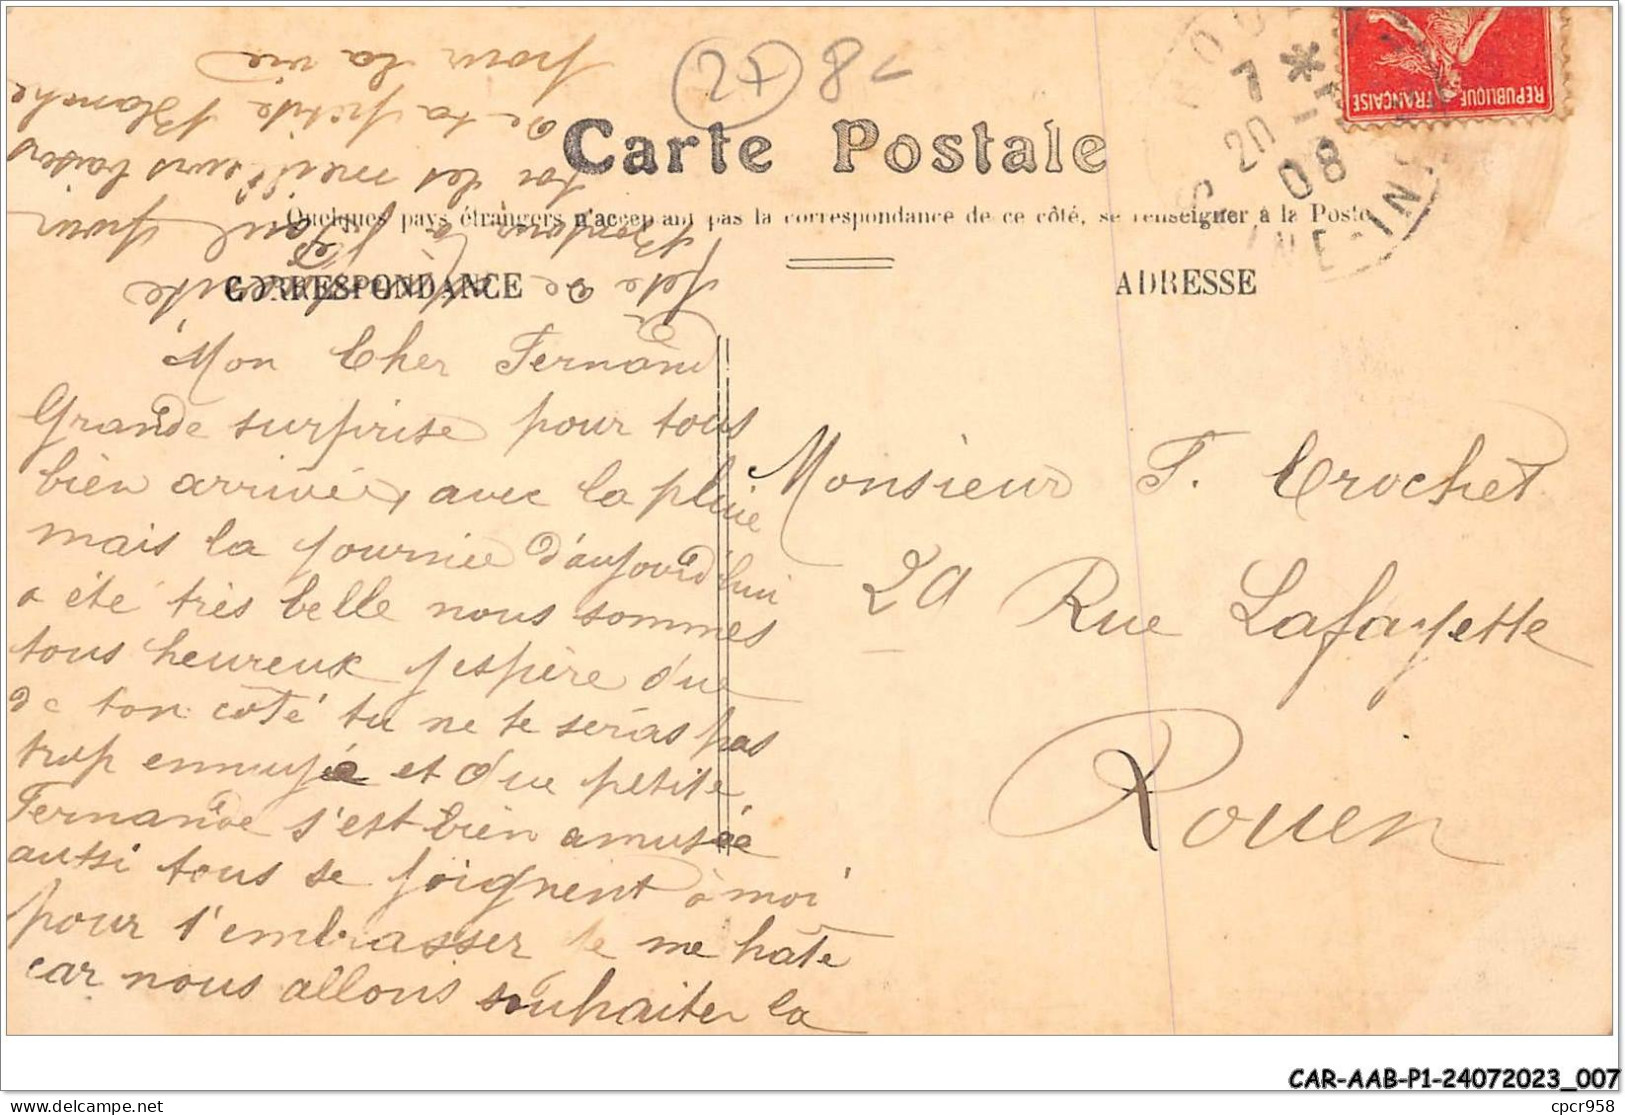 27 8-
Carte Postale
Quelques pays étrangers n'acceptant pas la correspondance de ce côté, se renseigner à la Poste
CORRESPONDANCE
ADRESSE
REPUBLIQUE FRANÇAISE
7 *
20 -
08
Mon Cher Fernand
Grande surprise pour tous
bien arrivées, avec la pluie
mais la journée d'aujourd'hui
a été très belle nous sommes
tous heureux j'espère que
de ton coté tu ne te serás pas
trop ennuyé et que petite
Fernande s'est bien amusée
aussi tous se joignent à moi
pour t'embrasser je me hate
car nous allons souhaiter la
fête de Marguerite
Bonjour à Paul pour
toi les meilleurs baisers
de ta petite Blanche
pour la vie
Monsieur F. Crochet
29 Rue Lafayette
Rouen
CAR-AAB-P1-24072023_007
cpcr958